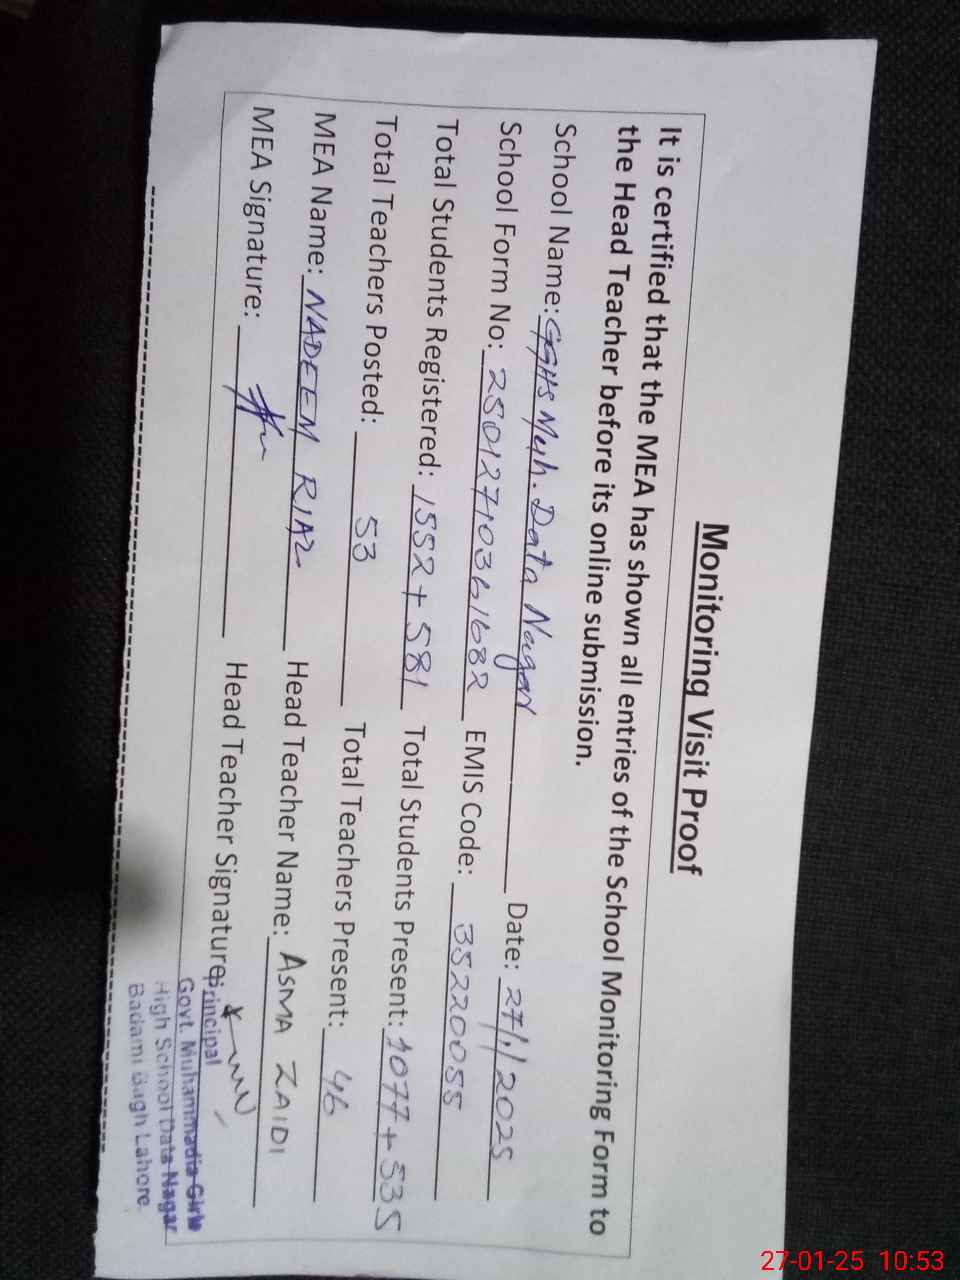 Monitoring Visit Proof
It is certified that the MEA has shown all entries of the School Monitoring Form to
the Head Teacher before its online submission.
School Name: GGHS Muh. Data Nagar Date: 27/1/2025
School Form No: 25012710361682 EMIS Code: 35220055
Total Students Registered: 1552+581 Total Students Present: 1077+535
Total Teachers Posted: 53 Total Teachers Present: 46
MEA Name: NADEEM RIAZ Head Teacher Name: ASMA ZAIDI
MEA Signature: Head Teacher Signature:
Principal
Govt. Muhammadia Girls
High School Data Nagar
Badami Bagh Lahore.
27-01-25 10:53